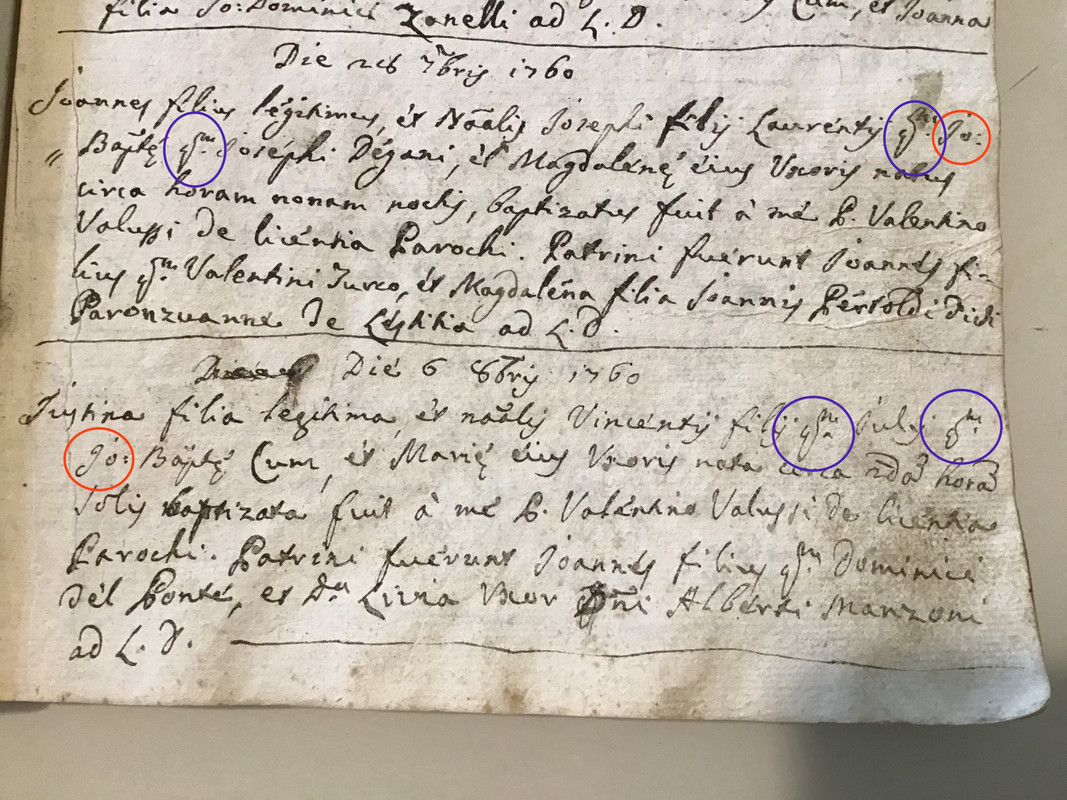 filia Jo: Dominici Zanelli ad L. D. Cum, et Joanna
Die 28 7bris 1760
Joannes filius legitimus, et Nãalis Josephi filij Laurentij qm. Jo:
" Baptę qm. Josephi Degani, et Magdalenę eius Uxoris natus
circa horam nonam noctis, baptizatus fuit à me P. Valentino
Valussi de licentia Parochi. Patrini fuerunt Joannes fi-
lius qm. Valentini Turco, et Magdalena filia Joannis Pertoldi dicti
Paronzuanne de Lestitia ad L. D.
Die 6 8bris 1760
Justina filia legitima, et nãalis Vincentij filij qm. Julij qm.
Jo: Baptę Cum, et Marię eius Uxoris nata circa 2dã horã
Solis baptizata fuit à me P. Valentino Valussi de licentia
Parochi. Patrini fuerunt Joannes filius qm. Dominici
Del Ponte, et Da. Livia Uxor Dñi Alberti Manzoni
ad L. D.